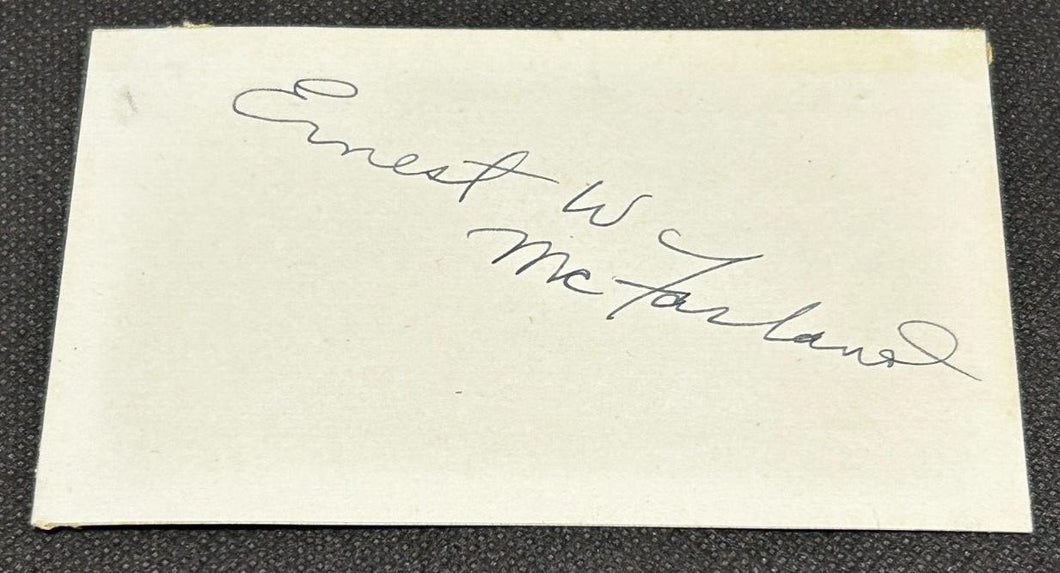 Ernest W
McFarland